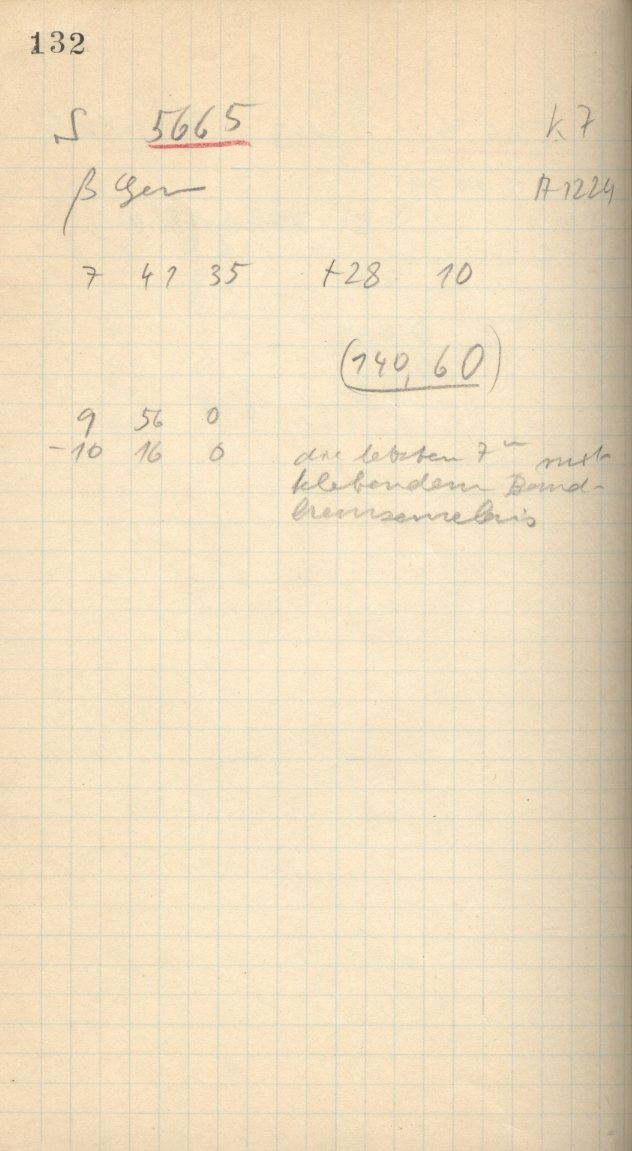 132
S 5665 k 7
β Gem A 1224
7 41 35 +28 10
(140, 60)
9 56 0
-10 16 0 die letzten 7 m mit
klebendem Band-